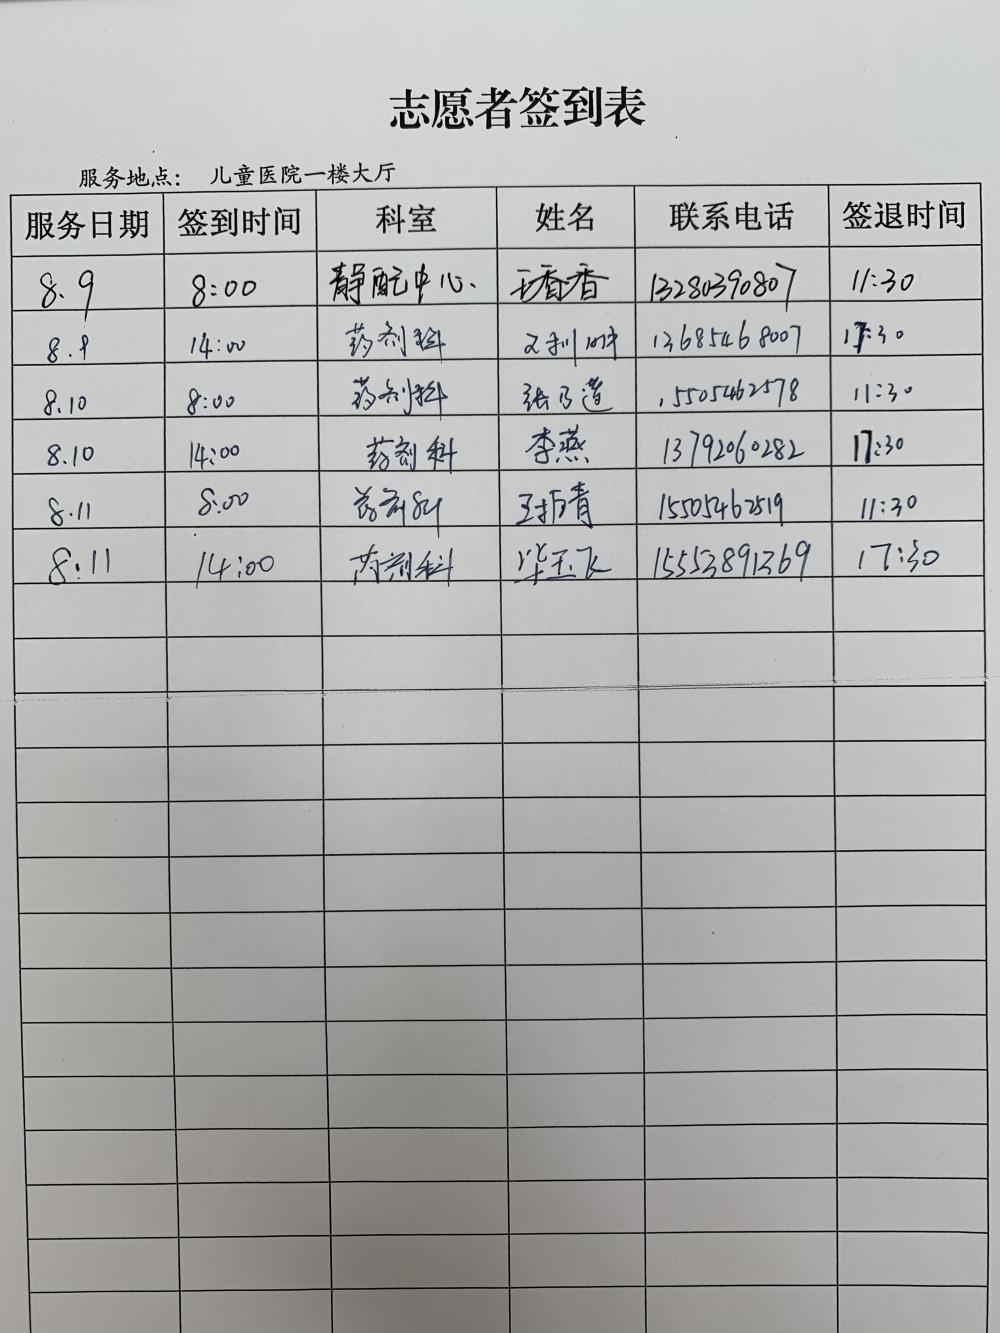 志愿者签到表
服务地点： 儿童医院一楼大厅
服务日期 签到时间 科室 姓名 联系电话 签退时间
8.9 8:00 静配中心. 王香香 13280390807 11:30
8.9 14:00 药剂科 13685468007 17:30
8.10 8:00 药剂科 张乃道 15505462578 11:30
8.10 14:00 药剂科 李燕 13792060282 17:30
8.11 8:00 药剂科 15505462519 11:30
8.11 14:00 药剂科 毕玉飞 15553891369 17:30